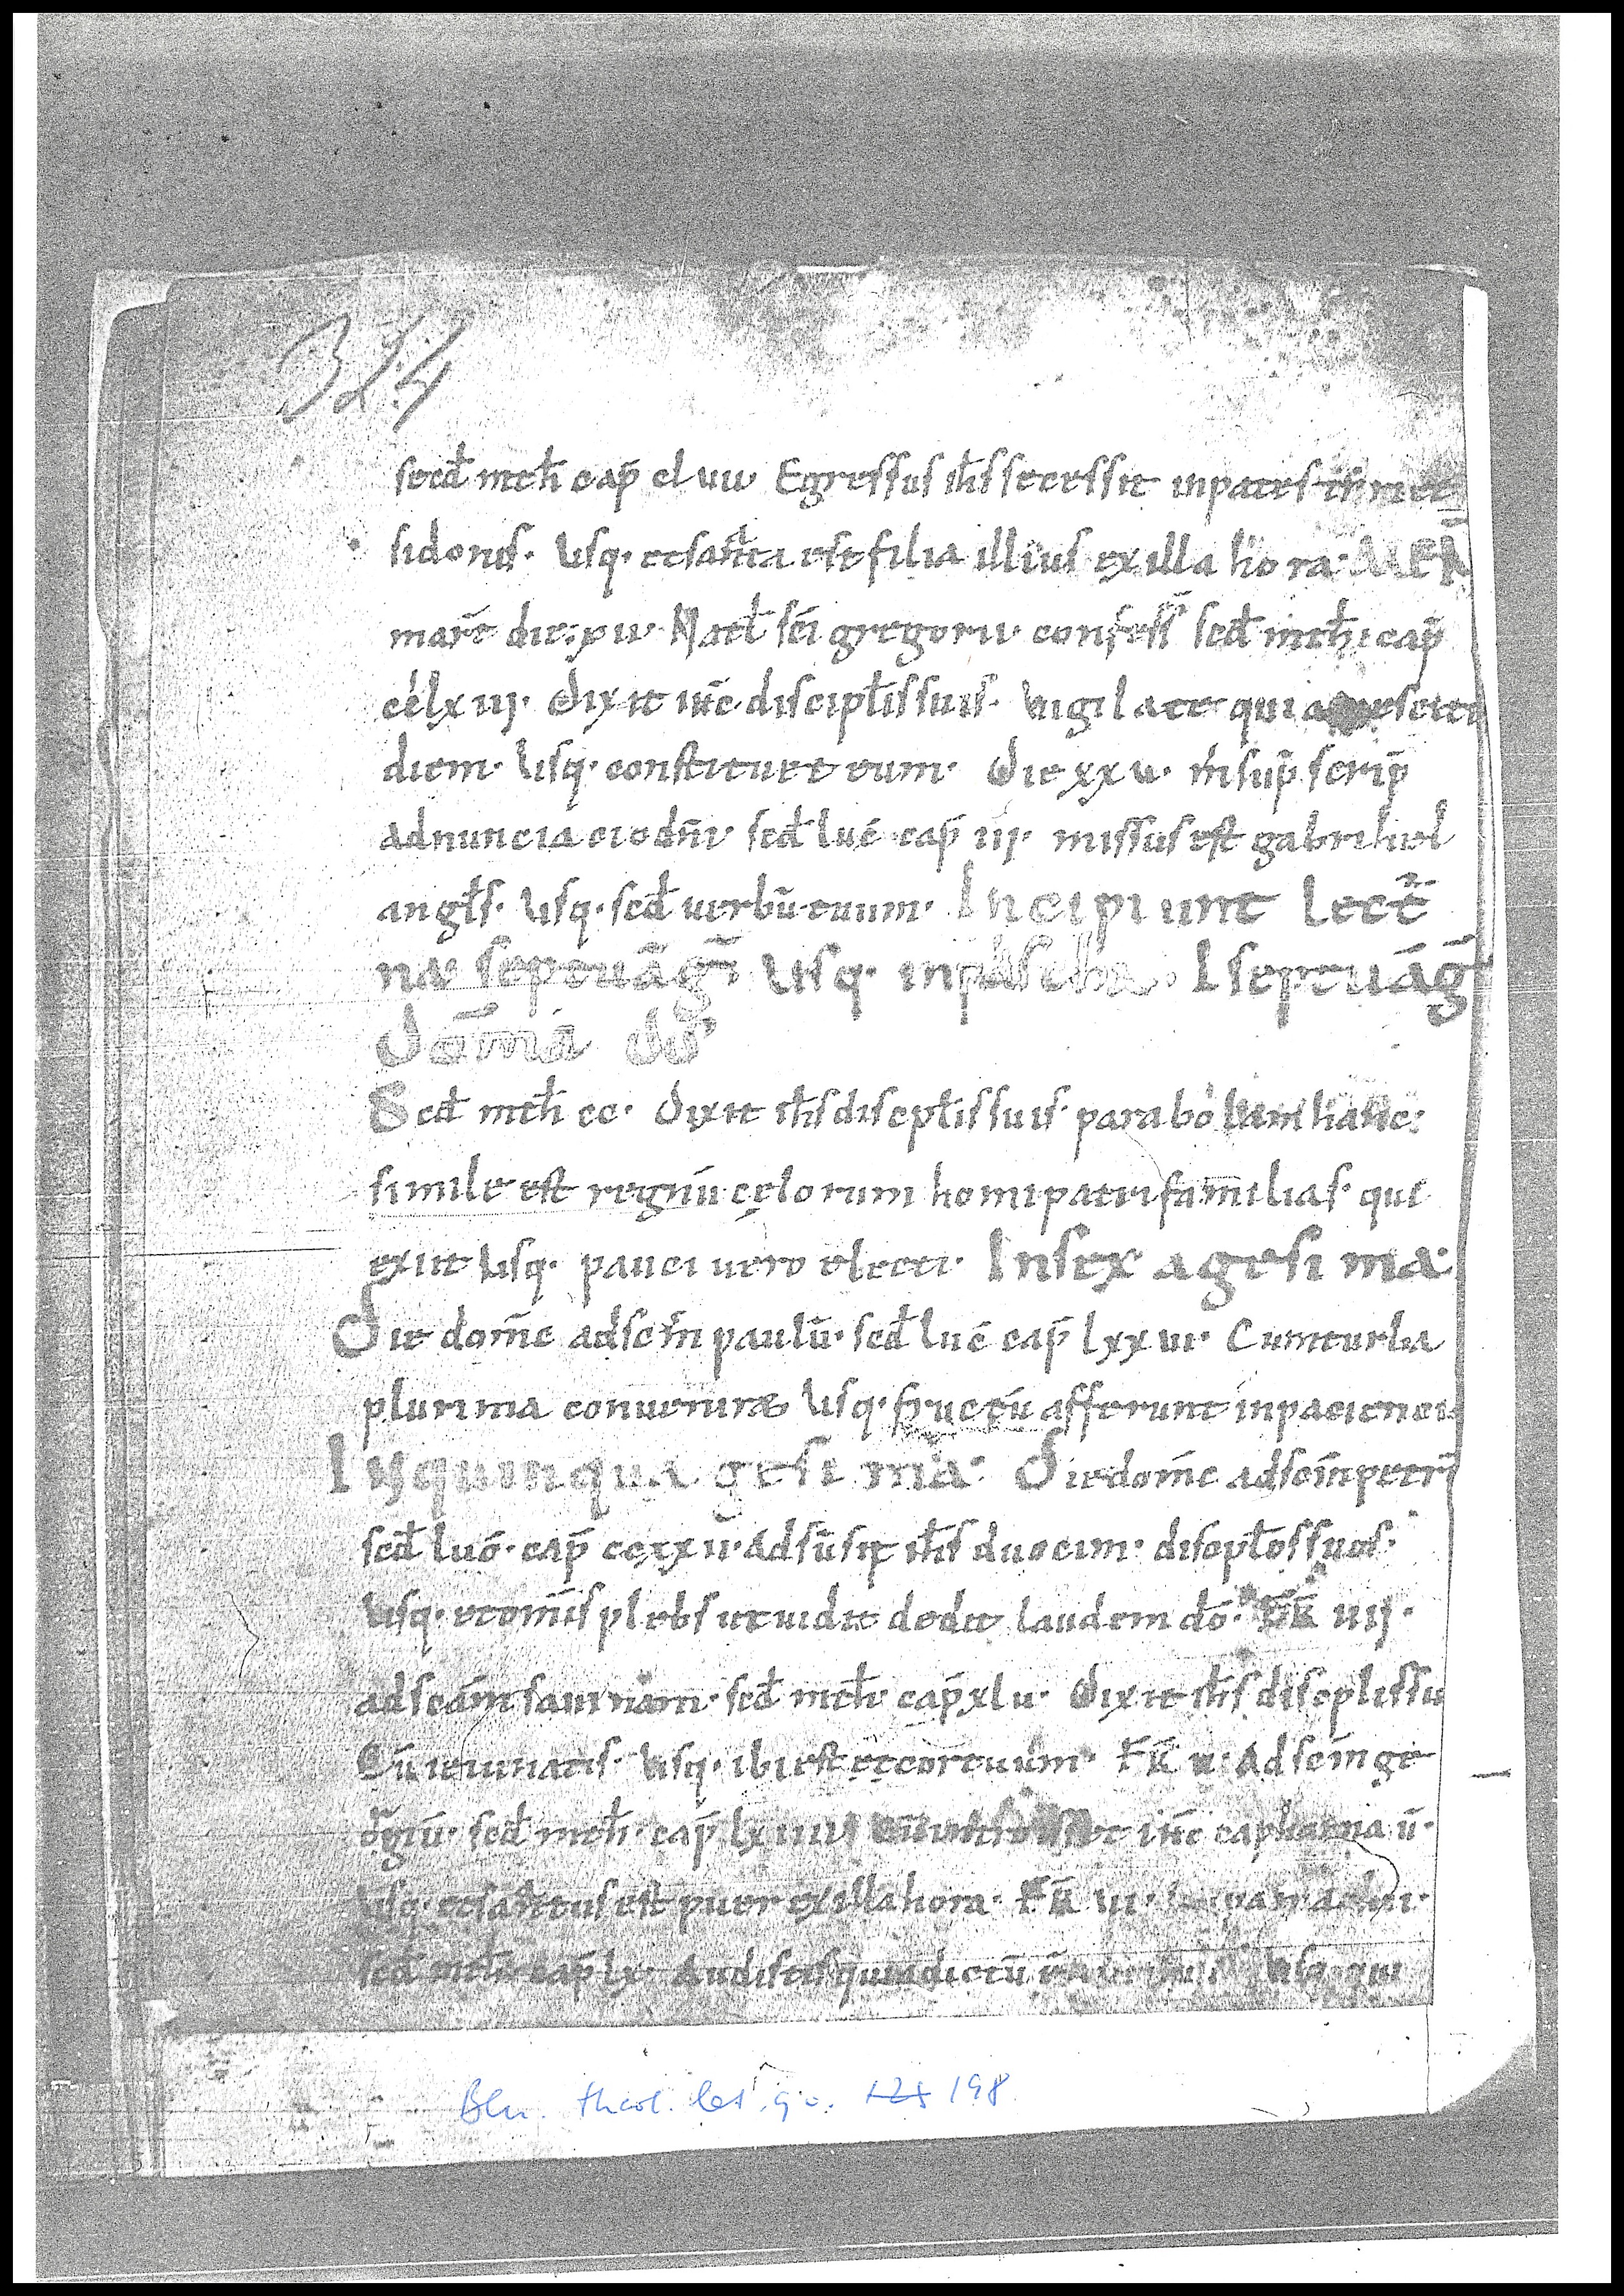 324
secd̄ mth̄ cap̄ clvii· Egressus ih̄s secessit inpartes
sidonis· Usq· etsanata est filia illius exilla hora· MEN
marc̄ die· xii· Nat̄ sc̄i gregorii· confess̄ scd̄ mth̄ cap̄
cclxiij· dixit ih̄c discipl̄is suis· vigilate quia nescitis
diem· Usq· constituet eum· Die xxv· m̄ sup̄ scrip̄
adnunciacio dn̄i· scd̄ luc̄ cap̄ iij· missus est gabrihel
angl̄s· Usq· scd̄ verbū tuum· Incipiunt lect̄
nae septuāg̅ Usq· inpascha· I septuāg̅
dōma do
Scd̄ mth̄ cc· Dixit ih̄s discipl̄is suis· parabolam hanc:
simile est regnū cęlorum homi patrifamilias· qui
exiit Usq· pauci vero electi· Insexagesima·
Die domc̄ adscm̄ paulū· scd̄ luc̄ cap̄ lxxvi· Cumturba
plurima convenire Usq· fructū afferunt inpaciencia
Inquinquagesima· Diedomc̄ adscm̄ petrū
scd̄ luc̄· cap̄ ccxxii· Adsūsit ih̄s duocim· discpl̄os suos·
Usq· etomīs plebs utvidit dedit laudem dō· FR̄ iiij·
adscām savinam· scd̄ mth̄ cap̄ xlv· Dixit ih̄s discplis su
Cū ieiunatis· Usq· ibi est etcortuum· FR̄ v· Ad scm̄ ge
orgiū· scd̄ mth̄· cap̄ lxiiii ih̄c capharnaū·
Usq· etsanatus est puer exillahora· FR̄ vi·
scd̄ mth̄ cap̄ lx· Audistis quiadictū Usq· qui
Bln. theol. lat. qo. 198